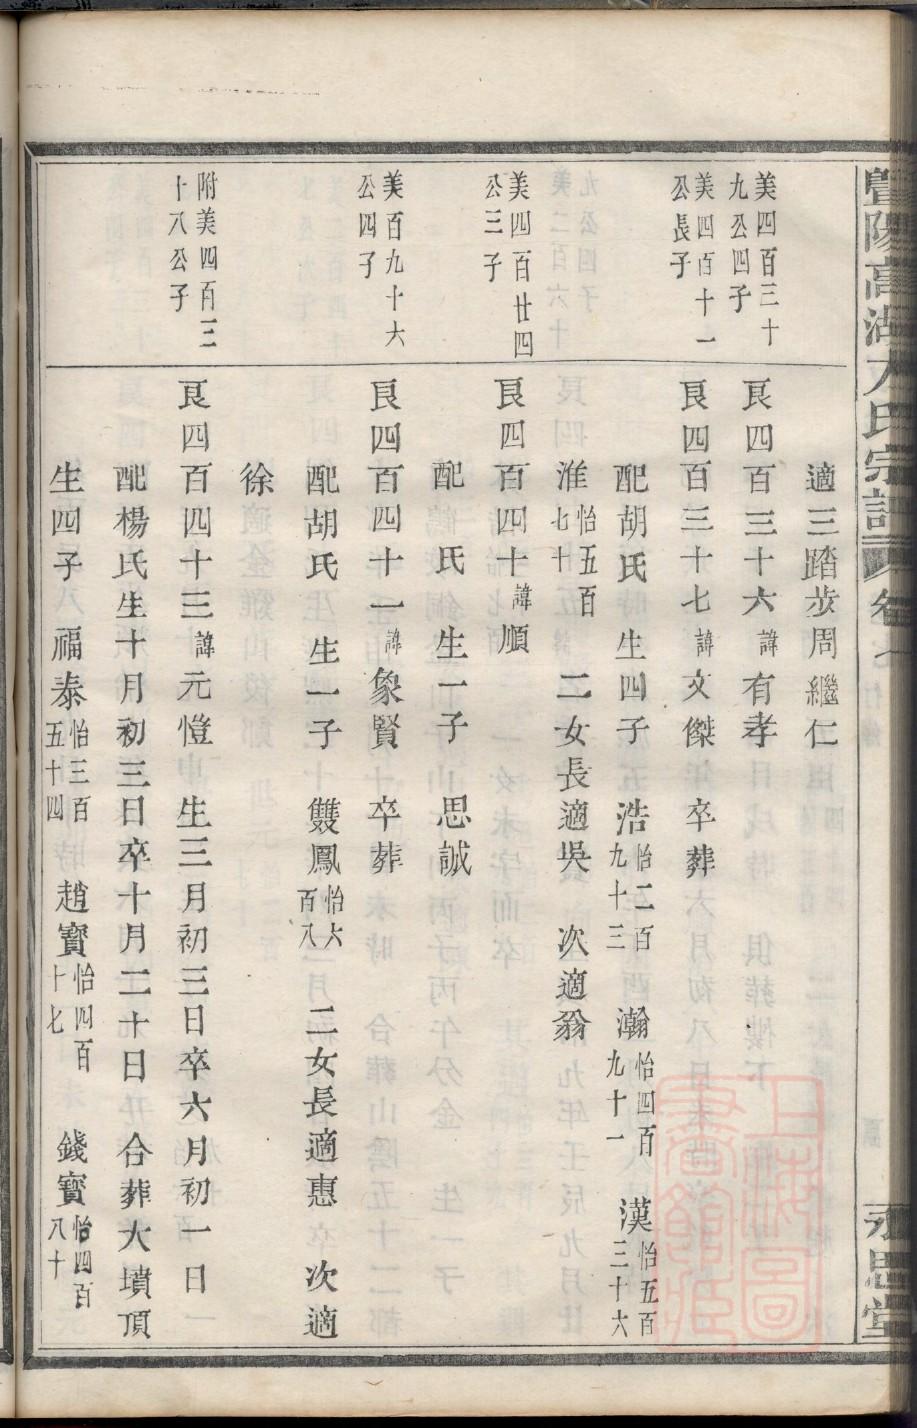 適三踏步周繼仁
美四百三十九公四子
艮四百三十六諱有孝
美四百十一公長子
艮四百三十七諱文傑 卒葬
配胡氏 生四子 浩怡二百九十三 瀚怡四百九十一 漢怡五百三十六
淮怡五百七十 二女長適吳 次適翁
美四百廿四公三子
艮四百四十諱順
配 氏 生一子 思誠
美百九十六公四子
艮四百四十一諱象賢 卒葬
配胡氏 生一子 雙鳳怡六百八 二女長適惠 次適
徐
附美四百三十八公子
艮四百四十三諱元愷 生三月初三日卒六月初一日
配楊氏生十月初三日卒十月二十日 合葬大墳頂
生四子 福泰怡三百五十四 趙寶怡四百十七 錢寶怡四百八十